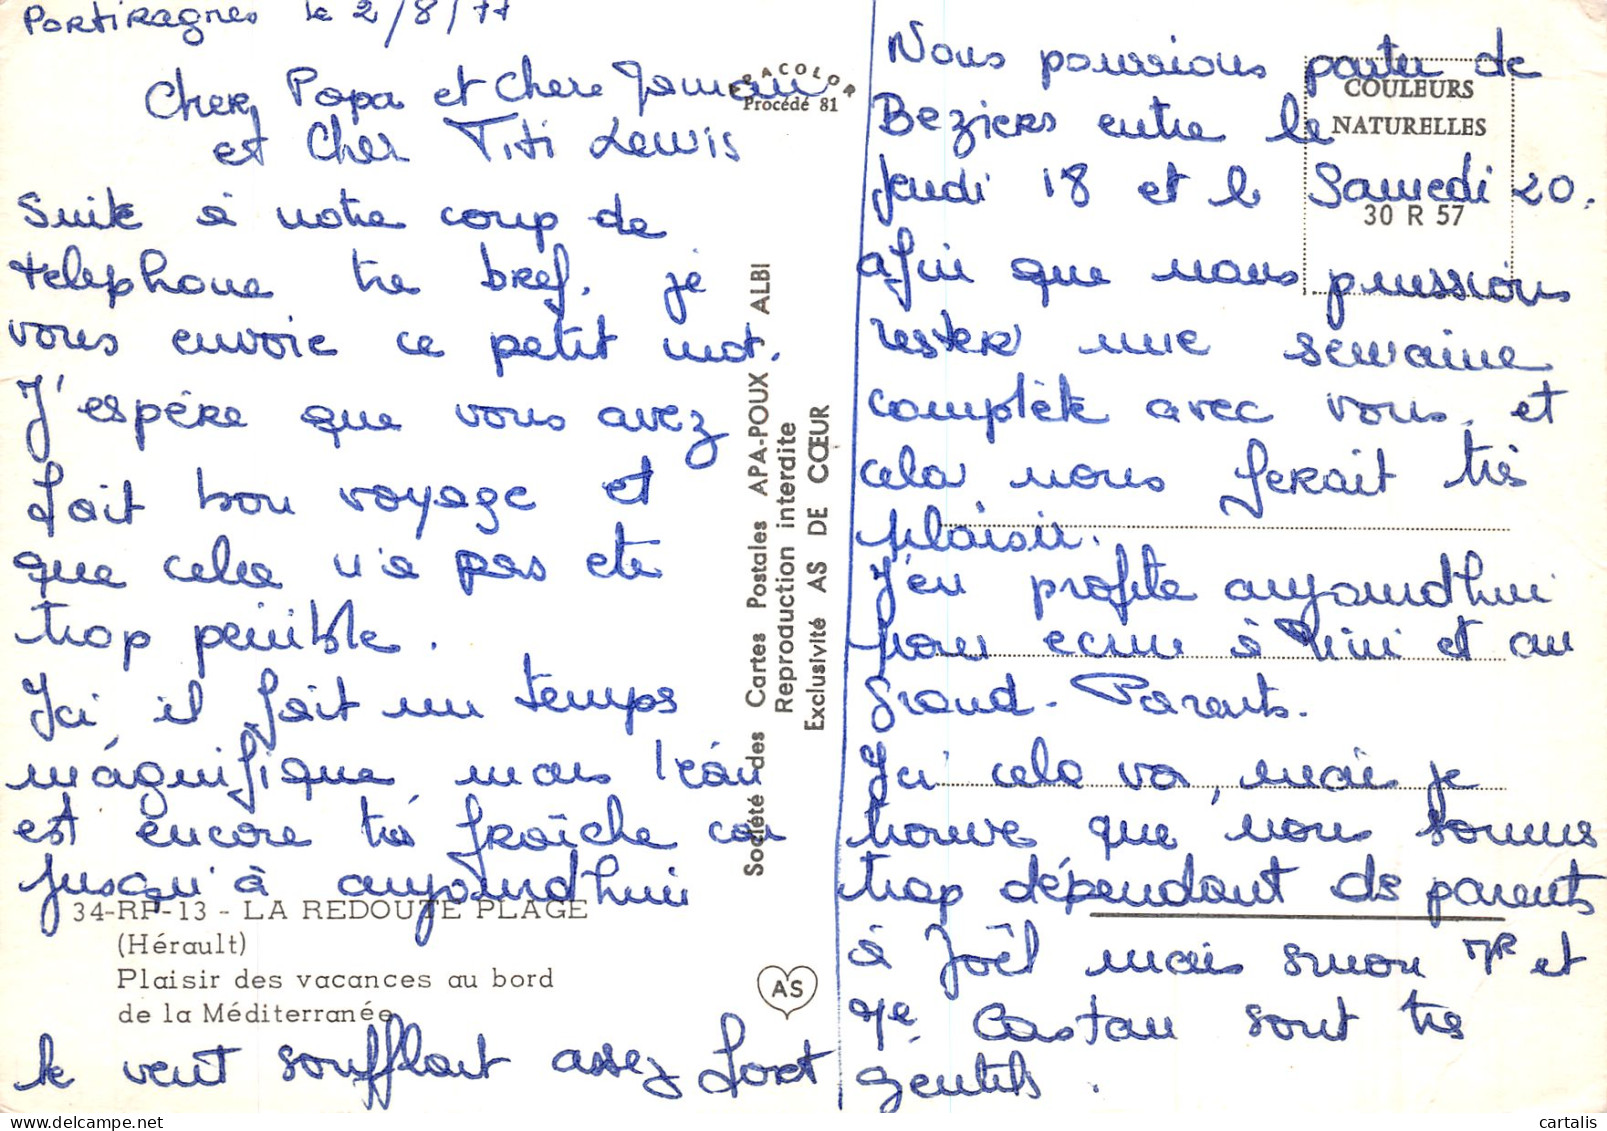 Portiragnes le 2/8/77
Cher Papa et chere Maman
et cher Titi Lewis
Suite à notre coup de
telephone tre bref, je
vous envoie ce petit mot.
J'espère que vous avez
fait bon voyage et
que cela n'a pas ete
trop penible.
Ici il fait un temps
magnifique mais l'eau
est encore très fraîche car
jusqu'à aujourd'hui
34-RP-13 - LA REDOUTE PLAGE
(Hérault)
Plaisir des vacances au bord
de la Méditerranée
le vent soufflait assez fort
COLOR
Procédé 81
Société des Cartes Postales APA-POUX ALBI
Reproduction interdite
Exclusivité AS DE CŒUR
AS
COULEURS
NATURELLES
30 R 57
Nous pourrions partir de
Beziers entre le
Jeudi 18 et le Samedi 20.
afin que nous puissions
rester une semaine
complète avec vous, et
cela nous ferait très
plaisir.
J'en profite aujourd'hui
pour ecrire à Mimi et au
Grand-Parents.
Ici cela va, mais je
trouve que nous sommes
trop dépendant des parents
à Joël mais sinon Mr et
Me Castan sont très
gentils.
cartalis